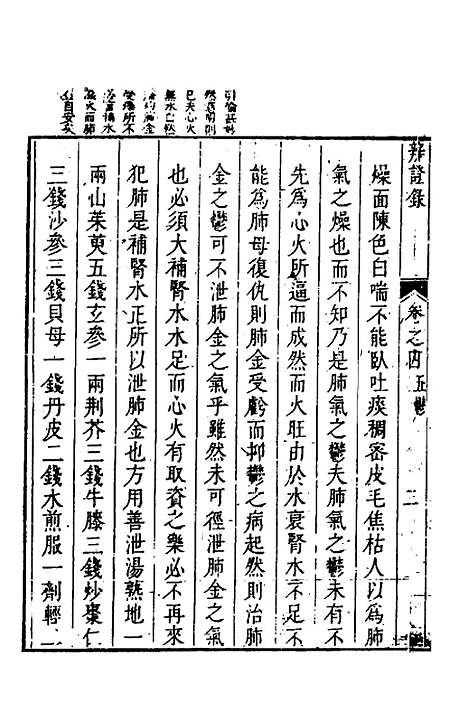 辨證錄
卷之四五鬱
三
燥面陳色白喘不能臥吐痰稠密皮毛焦枯人以為肺
氣之燥也而不知乃是肺氣之鬱夫肺氣之鬱未有不
先為心火所逼而成然而火旺由於水衰腎水不足不
能為肺母復仇則肺金受虧而抑鬱之病起然則治肺
金之鬱可不泄肺金之氣乎雖然未可徑泄肺金之氣
也必須大補腎水水足而心火有取資之樂必不再來
犯肺是補腎水正所以泄肺金也方用善泄湯熟地一
兩山茱萸五錢玄參一兩荆芥三錢牛膝三錢炒棗仁
三錢沙參三錢貝母一錢丹皮二錢水煎服一劑輕二